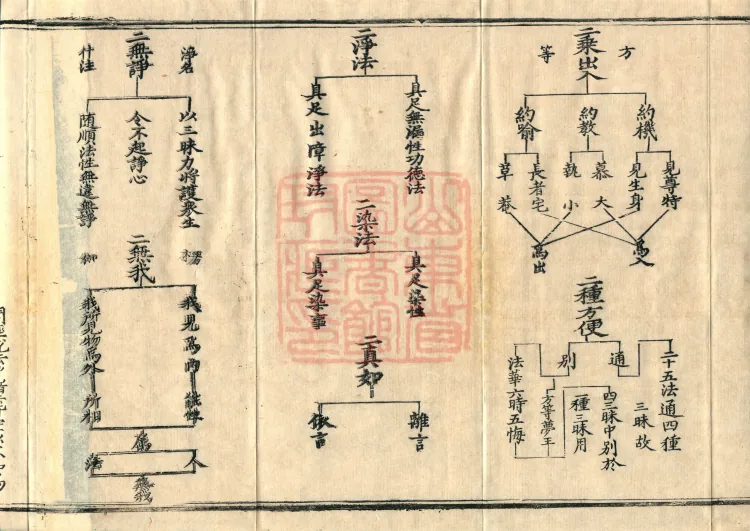 二乘出入
方等
約機
約教
約喻
見尊特
見生身
慕大
執小
長者宅
草菴
為入
為出
二種方便
通
別
二十五法通四種
三昧故
四三昧中別於
一種三昧用
方等夢王
法華六時五悔
二淨法
具足無漏性功德法
具足出障淨法
二染法
具足染性
具足染事
二真如
離言
依言
二無諍
淨名
什注
以三昧力將護眾生
令不起諍心
隨順法性無違無諍
二無我
我見為內
我所見物為外
無我